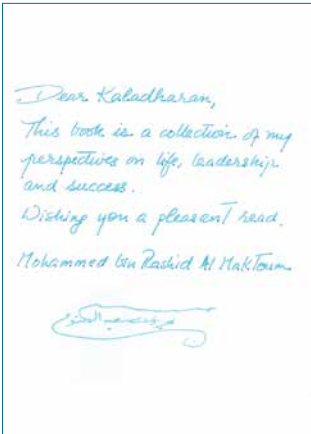 Dear Kaladharan,
This book is a collection of my
perspectives on life, leadership
and success.
Wishing you a pleasant read.
Mohammed bin Rashid Al Maktoum